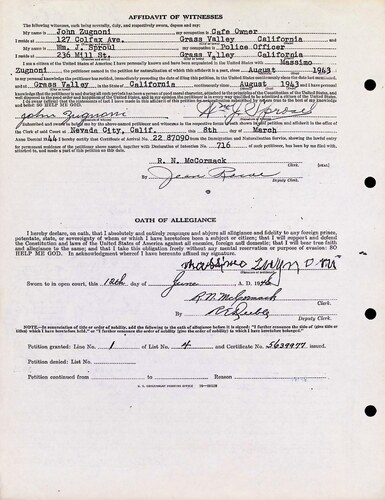 AFFIDAVIT OF WITNESSES
The following witnesses, each being severally, duly, and respectively sworn, depose and say:
My name is John Zugnoni my occupation is Cafe Owner
I reside at 127 Colfax Ave. Grass Valley California
My name is Wm. J. Sproul my occupation is Police Officer
I reside at 236 Mill St. Grass Valley California
I am a citizen of the United States of America; I have personally known and have been acquainted in the United States with Massimo
Zugnoni, the petitioner named in the petition for naturalization of which this affidavit is a part, since August 1943
to my personal knowledge the petitioner has resided, immediately preceding the date of filing this petition, in the United States continuously since the date last mentioned,
and at Grass Valley in the State of California continuously since August 1943 and I have
I do swear (affirm) that the statements of fact I have made in this affidavit of this petition for naturalization subscribed by me are true to the best of my knowledge
and belief SO HELP ME GOD.
John Zugnoni Wm J Sproul
Subscribed and sworn to before me by the above-named petitioner and witnesses in the respective forms of oath shown in said petition and affidavit in the office of
the Clerk of said Court at Nevada City, Calif. this 8th day of March
Anno Domini 1944 I hereby certify that Certificate of Arrival No. 22 87090 from the Immigration and Naturalization Service, showing the lawful entry for
permanent residence of the petitioner above named, together with Declaration of Intention No. 716 of such petitioner, has been by me filed with,
attached to, and made a part of this petition on this date.
R. N. McCormack
Clerk.
[SEAL]
By Jean
Deputy Clerk.
OATH OF ALLEGIANCE
I hereby declare, on oath, that I absolutely and entirely renounce and abjure all allegiance and fidelity to any foreign prince,
potentate, state, or sovereignty of whom or which I have heretofore been a subject or citizen; that I will support and defend
the Constitution and laws of the United States of America against all enemies, foreign and domestic; that I will bear true faith
and allegiance to the same; and that I take this obligation freely without any mental reservation or purpose of evasion: SO
HELP ME GOD. In acknowledgment whereof I have hereunto affixed my signature.
Massimo Zugnoni
Sworn to in open court, this 10th day of June A. D. 1946
R. N. McCormack
Clerk.
By
Deputy Clerk.
NOTE.—In renunciation of title or order of nobility, add the following to the oath of allegiance before it is signed: "I further renounce the title of (give title or
titles) which I have heretofore held", or "I further renounce the order of nobility (give the order of nobility) to which I have heretofore belonged."
Petition granted: Line No. 1 of List No. 4 and Certificate No. 5639977 issued.
Petition denied: List No.
Petition continued from to Reason
U. S. GOVERNMENT PRINTING OFFICE